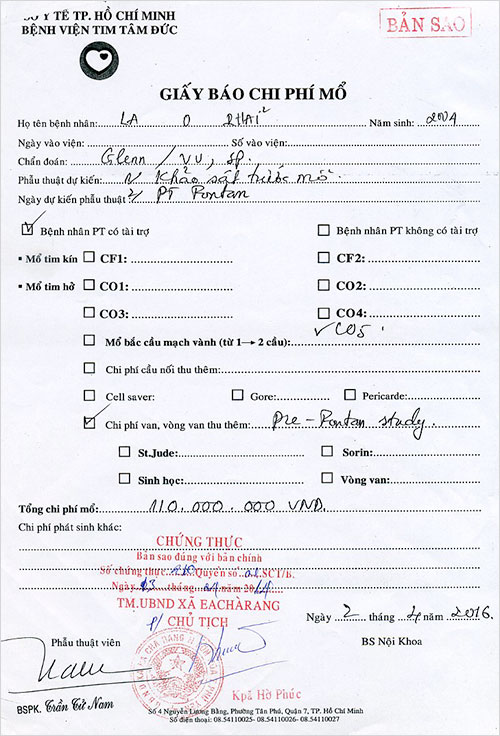 SỞ Y TẾ TP. HỒ CHÍ MINH
BẢN SAO
BỆNH VIỆN TIM TÂM ĐỨC
GIẤY BÁO CHI PHÍ MỔ
Họ tên bệnh nhân: LA O Năm sinh: 2004
Ngày vào viện: Số vào viện:
Chẩn đoán: Glenn / VU, sp.
Phẫu thuật dự kiến: 1/ Khảo sát trước mổ.
Ngày dự kiến phẫu thuật: 2/ PT Fontan
Bệnh nhân PT có tài trợ Bệnh nhân PT không có tài trợ
• Mổ tim kín CF1: CF2:
• Mổ tim hở CO1: CO2:
CO3: CO4:
CO5
Mổ bắc cầu mạch vành (từ 1→ 2 cầu):
Chi phí cầu nối thu thêm:
Cell saver: Gore: Pericarde:
Chi phí van, vòng van thu thêm: Pre-Fontan study.
St.Jude: Sorin:
Sinh học: Vòng van:
Tổng chi phí mổ: 110.000.000 VND.
Chi phí phát sinh khác:
CHỨNG THỰC
Bản sao đúng với bản chính
Số chứng thực Quyển số SCT/B.
Ngày tháng năm
TM.UBND XÃ EACHARANG
P/ CHỦ TỊCH
Ngày 2 tháng 4 năm 2016.
Phẫu thuật viên BS Nội Khoa
Kpă Hờ Phúc
BSPK. Trần Cử Nam
Số 4 Nguyễn Lương Bằng, Phường Tân Phú, Quận 7, TP. Hồ Chí Minh
Số điện thoại: 08.54110025- 08.54110026- 08.54110027